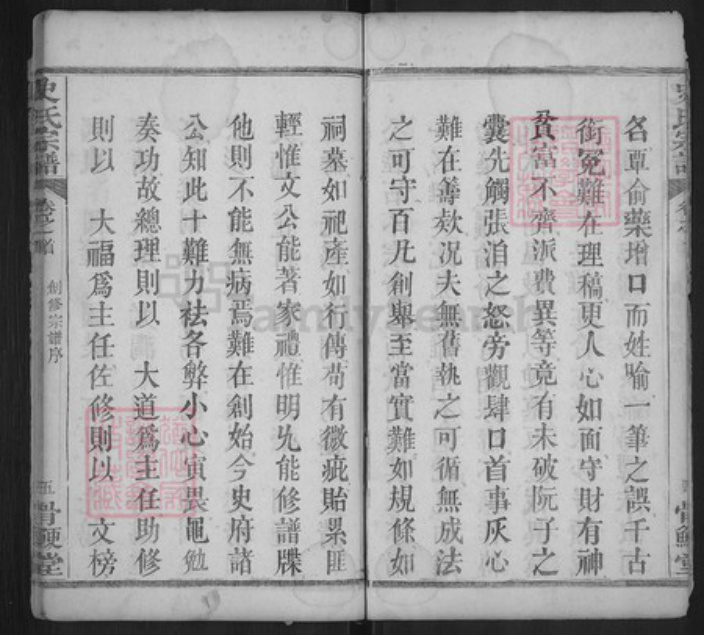 名覃俞藥增口而姓喻一筆之誤千古
銜冤難在理稿更人心如面守財有神
貧富不齊派費異等竟有未破阮子之
囊先觸張洎之怒旁觀肆口首事灰心
難在籌欸况夫無舊執之可循無成法
之可守百凡創舉至當實難如規條如
祠墓如祀產如行傳苟有微疵貽累匪
輕惟文公能著家禮惟明允能修譜牒
他則不能無病焉難在創始今史府諸
公知此十難力祛各弊小心寅畏黽勉
奏功故總理則以 大道為主任助修
則以 大福為主任佐修則以 文榜
史氏宗譜
卷之首
創修宗譜序
五
骨鯁堂
familysearch